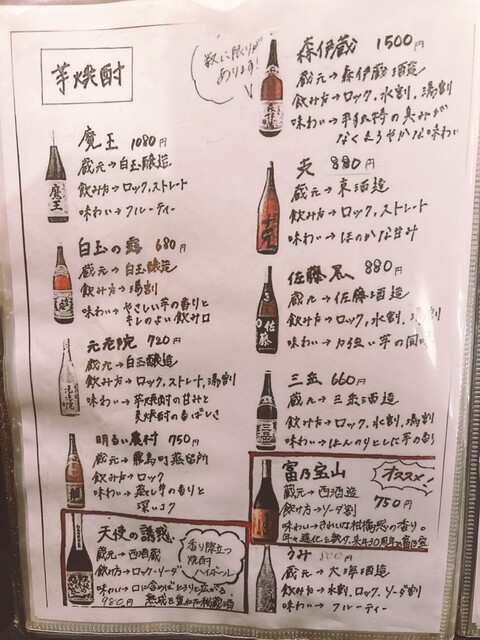 芋焼酎
魔王 1080円
蔵元→白玉醸造
飲み方→ロック,ストレート
味わい→フルーティー
白玉の露 680円
蔵元→白玉醸造
飲み方→湯割
味わい→やさしい芋の香りと
キレのよい飲み口
元老院 720円
蔵元→白玉醸造
飲み方→ロック,ストレート,湯割
味わい→芋焼酎の甘みと
麦焼酎の香ばしさ
明るい農村 750円
蔵元→霧島町蒸留所
飲み方→ロック
味わい→蒸し芋の香りと
深いコク
天使の誘惑
蔵元→西酒蔵
飲け方→ロック・ソーダ
味わい→口に含めばとろりと広がる
980円 熟成を重ねた秘蔵酒
香り際立つ
焼酎
ハイボール
数に限りが
あります!
森伊蔵 1500円
蔵元→森伊蔵酒造
飲み方→ロック,水割,湯割
味わい→芋独特の臭みが
なくまろやかな味わい
夫 880円
蔵元→東酒造
飲み方→ロック,ストレート
味わい→ほのかな甘み
佐藤黒 880円
蔵元→佐藤酒造
飲み方→ロック,水割,湯割
味わい→力強い芋の風味
三岳 660円
蔵元→三岳酒造
飲み方→ロック,水割,湯割
味わい→ほんのりとした芋の香り
富乃宝山
オススメ!
蔵元→西酒造 750円
飲け方→ソーダ割
味わい→きれいな柑橘感の香り。
うみ 800円
蔵元→大海酒造
飲み方→水割,ロック,ソーダ割
味わい→フルーティー
魔王
佐藤
三岳